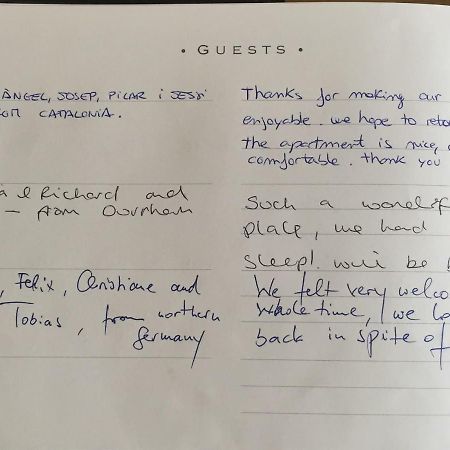 • GUESTS •
ÀNGEL, JOSEP, PILAR i JESSI
CATALONIA.
Thanks for making our
enjoyable. we hope to
the apartment is nice,
comfortable. thank you
Richard and
– from Durham
Such a
place, we had
sleep!
, Felix, Christiane and
Tobias, from northern
Germany
We felt very
whole time, we
back in spite of